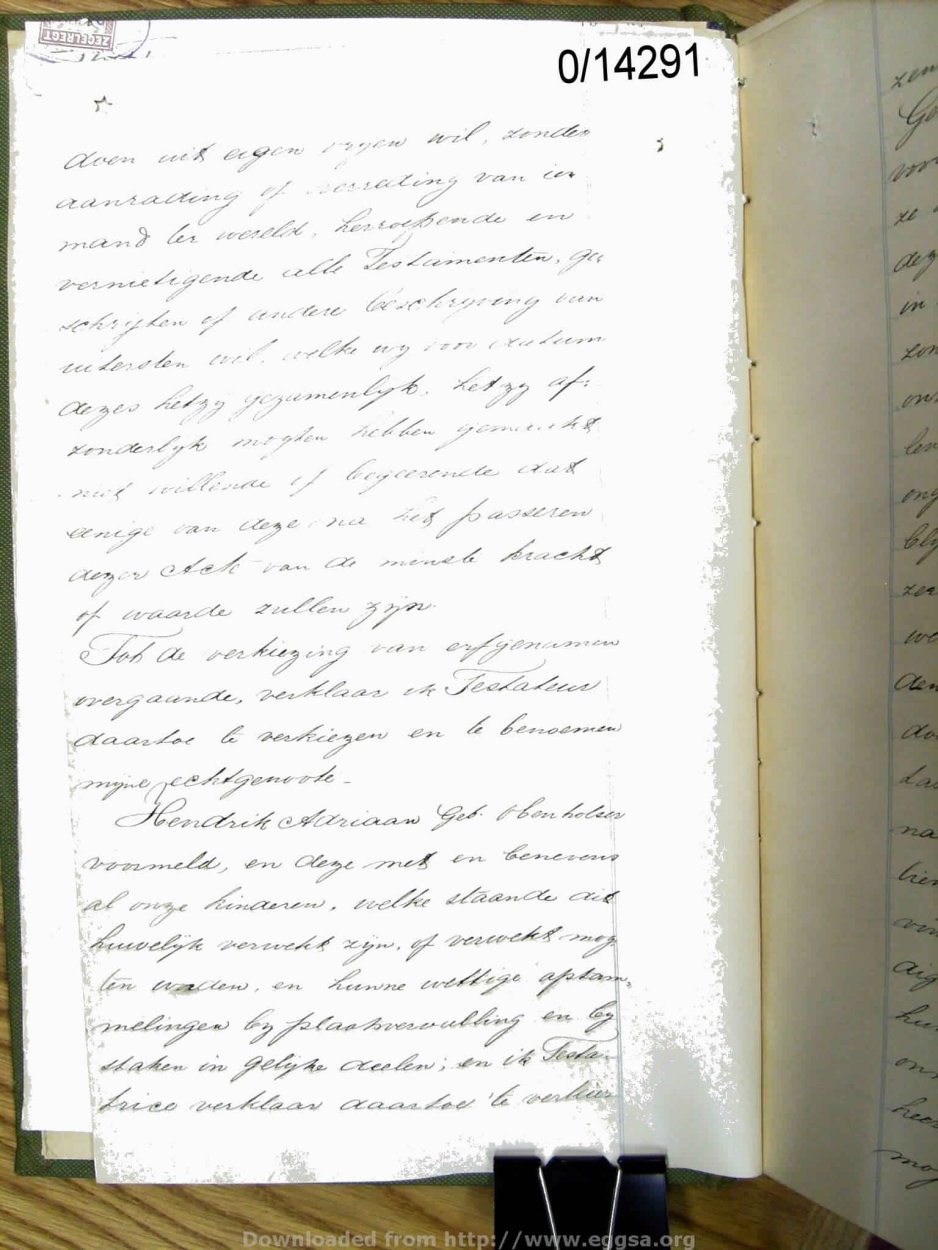 ZEGELREGT
0/14291
doen uit eigen vryen wil, zonder
aanrading of verreding van ie,
mand ter wereld, herroepende en
vernietigende alle Testamenten, ge,
schriften of andere beschryving van
uitersten wil, welke wy voor datum
dezes hetzy gezamenlyk, hetzy af,
zonderlyk mogten hebben gemaakt
niet willende of begeerende dat
eenige van deze na het passeren
dezer Ack van de minste kracht
of waarde zullen zyn.
Tot de verkiezing van erfgenamen
overgaande, verklaar ik Testateur
daartoe te verkiezen en te benoemen
myne echtgenoote -
Hendrik Adriaan Geb. Obenholser
voormeld, en deze met en benevens
al onze kinderen, welke staande dit
huwelyk verwekt zyn, of verwekt mog
ten worden, en hunne wettige afstam,
melingen by plaatsvervulling en by
staken in gelyke deelen; en ik Testa-
trice verklaar daartoe te verkie
zen
voor
ze
dez
in
zon
on
len
ong
bly
zee
we
den
do
na
hee
mog
Downloaded from http://www.eggsa.org